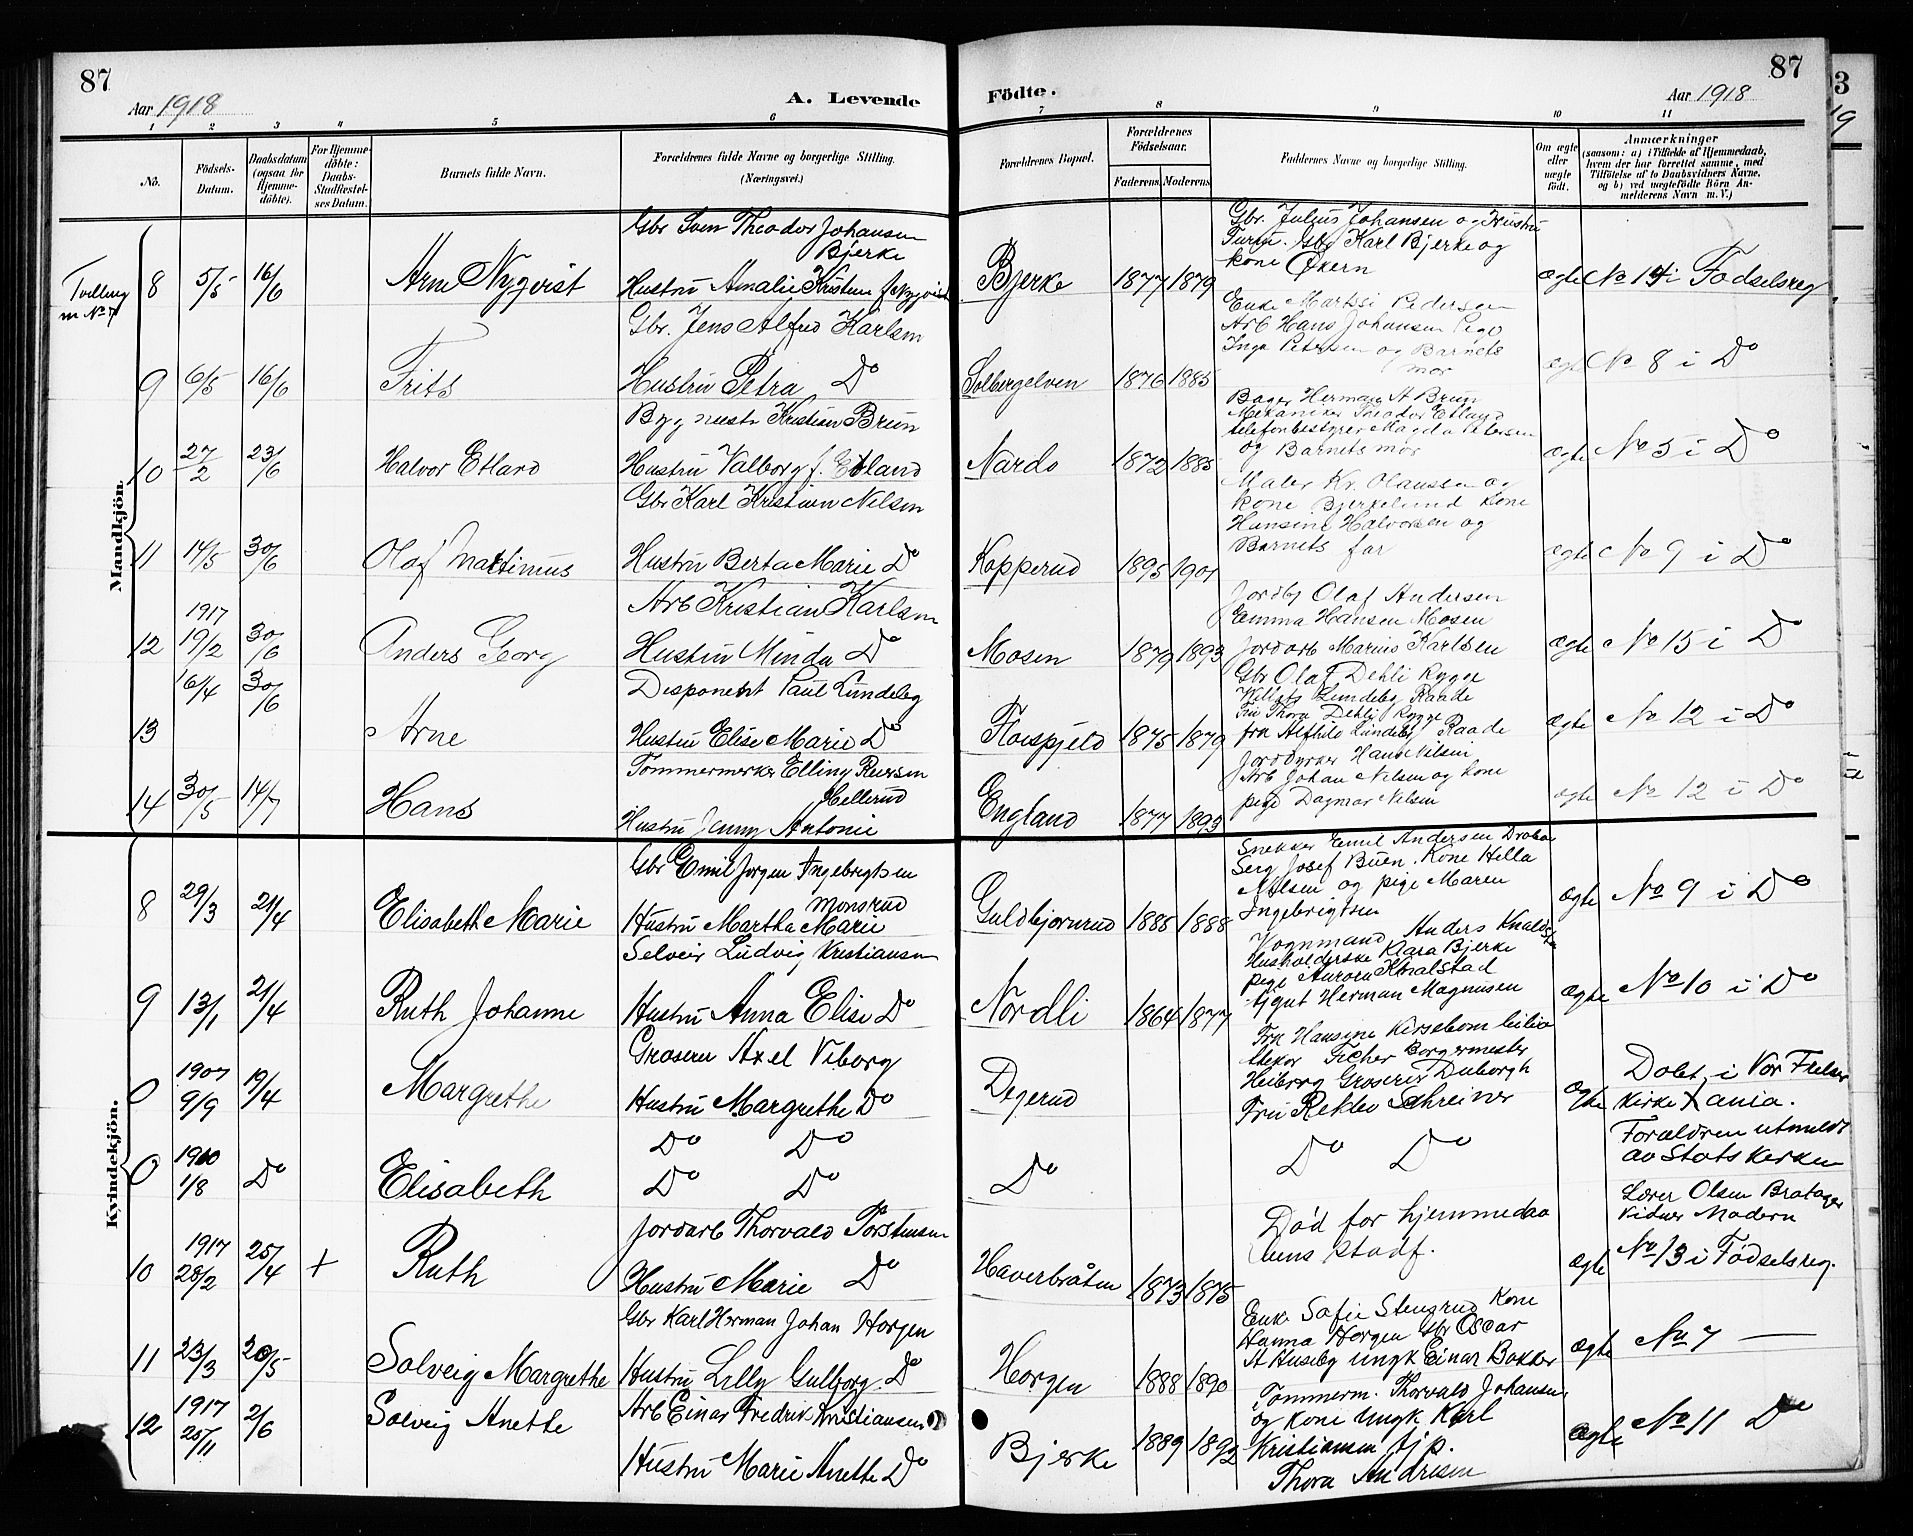 87
Aar 1918
A. Levende
Födte.
87
Aar 1918
1 2 3 4 5 6 7 8 9 10 11
No.
Födsels-Datum.
Daabsdatum (ogsaa for Hjemme-döbte).
For Hjemme-döbte: Daabs-Stadfæstel-ses Datum.
Barnets fulde Navn.
Forældrenes fulde Navne og borgerlige Stilling. (Næringsvei.)
Forældrenes Bopæl.
Forældrenes Födselsaar.
Faderens
Moderens
Faddernes Navne og borgerlige Stilling.
Om ægte eller uægte født.
Anmærkninger
(saasom: a) i Tilfælde af Hjemmedaab, hvem der har forrettet samme, med Tilföielse af to Daabsvidners Navne, og b) ved uægtefödte Börn Anmelderens Navn m.V.)
Mandkjön
Tvilling m No 7
8 5/5 16/6 Arne Nyqvist
Gbr Sven Theodor Johansen
Bjerke
Hustru Amalie Kristine f. Nyqvist
Bjerke 1877 1879
Gbr. Julius Johansen og Hustru
Gbr Karl Bjerke og
kone Økern
ægte No 14 i Fødselsreg
9 6/5 16/6 Frits
Gbr. Jens Alfred Karlsen
Hustru Petra Do
Solbergelven 1876 1885
Enke Pedersen
Arb Hans Johansen Pige
Inga Petersen og Barnets
mor
ægte No 8 i Do
10 27/2 23/6 Halvor Etland
Bygmestr Kristian Brun
Hustru Valborg f. Etland
Nardo 1872 1885
Bager Herman A Brun
Mekaniker Theodor Etland
telefonbestyrer Magda Petersen
og Barnets mor
ægte No 5 i Do
11 14/5 30/6 Olaf Martinius
Gbr Karl Kristian Nilsen
Hustru Berta Marie Do
Kopperud 1895 1901
Maler Kr. Olaussen og
kone Bjerkelund kone
Hansine Halvorsen og
Barnets far
ægte No 9 i Do
12 1917 19/2 30/6 Anders Georg
Arb Kristian Karlsen
Hustru Minda Do
Mosen 1879 1893
Jordbr Olaf Andersen
Emma Hansen Mosen
Jordarb Marius Karlsen
ægte No 15 i Do
13 16/4 30/6 Arne
Disponent Paul Lundeby
Hustru Elise Marie Do
1875 1879
Gbr Olaf Dehli Rygge
Lundeby Raade
Fru Thora Dehli Rygge
Lundeby Raade
ægte No 12 i Do
14 30/5 14/7 Hans
Tømmermerker Elling Reiersen
Hellerud
Hustru Jenny Antonie
England 1877 1893
Jorddyrker Hans Nilsen
Arb Johan Nilsen og kone
pige Dagmar Nilsen
ægte No 12 i Do
Kvindekjön.
8 29/3 21/4 Elisabeth Marie
Gbr Emil Jørgen Ingebrigtsen
Monsrud
Hustru Martha Marie
Guldbjørnrud 1885 1888
Snekker Emil Andersen Drøbak
Serg Josef Buen. Kone Hella
Nilsen og pige Maren
Ingebrigtsen
ægte No 9 i Do
9 13/1 21/4 Ruth Johanne
Selveier Ludvig Kristiansen
Hustru Anna Elise Do
Nordli 1864 1877
Vognmand Anders Knalstad
Husholderske Klara Bjerke
pige Aurora Knalstad
Herman Magnusen
ægte No 10 i Do
0 1907 9/9 19/4 Margrethe
Groserer Axel Viborg
Hustru Margrethe Do
Degerud
Fru Hansine Kirsebom
Ficher Borgermester
Heiberg Groserer Duborgh
Fru Schreiner
ægte
Døbt i Vor Frelser
kirke Xania.
0 1910 1/8 Do Elisabeth
Do Do
Do Do
Do
Do Do
Forældren utmeldt
av Statskirken
10 1917 28/2 25/4 + Ruth
Jordarb Thorvald Torstensen
Hustru Marie Do
Haverbråten 1873 1875
Død før hjemmedaa
bens stadf.
ægte
Lærer Olsen Bratager
Vidner Modern
No 13 i Fødselsreg.
11 23/3 20/5 Solveig Margrethe
Gbr Karl Herman Johan Horgen
Hustru Lilly Gulborg Do
Horgen 1888 1890
Enke Sofie Stensrud Kone
Hanna Horgen Gbr Oscar
A Huseby ungk Einar Bakker
ægte No 7 —
12 1917 25/11 2/6 Solveig Anette
Arb Einar Fredrik Kristiansen
Hustru Marie Anette Do
Bjerke 1889 1892
Tømmerm. Thorvald Johansen
og kone ungk Karl
Kristiansen pp.
Thora Andresen
ægte No 11 Do
3
19